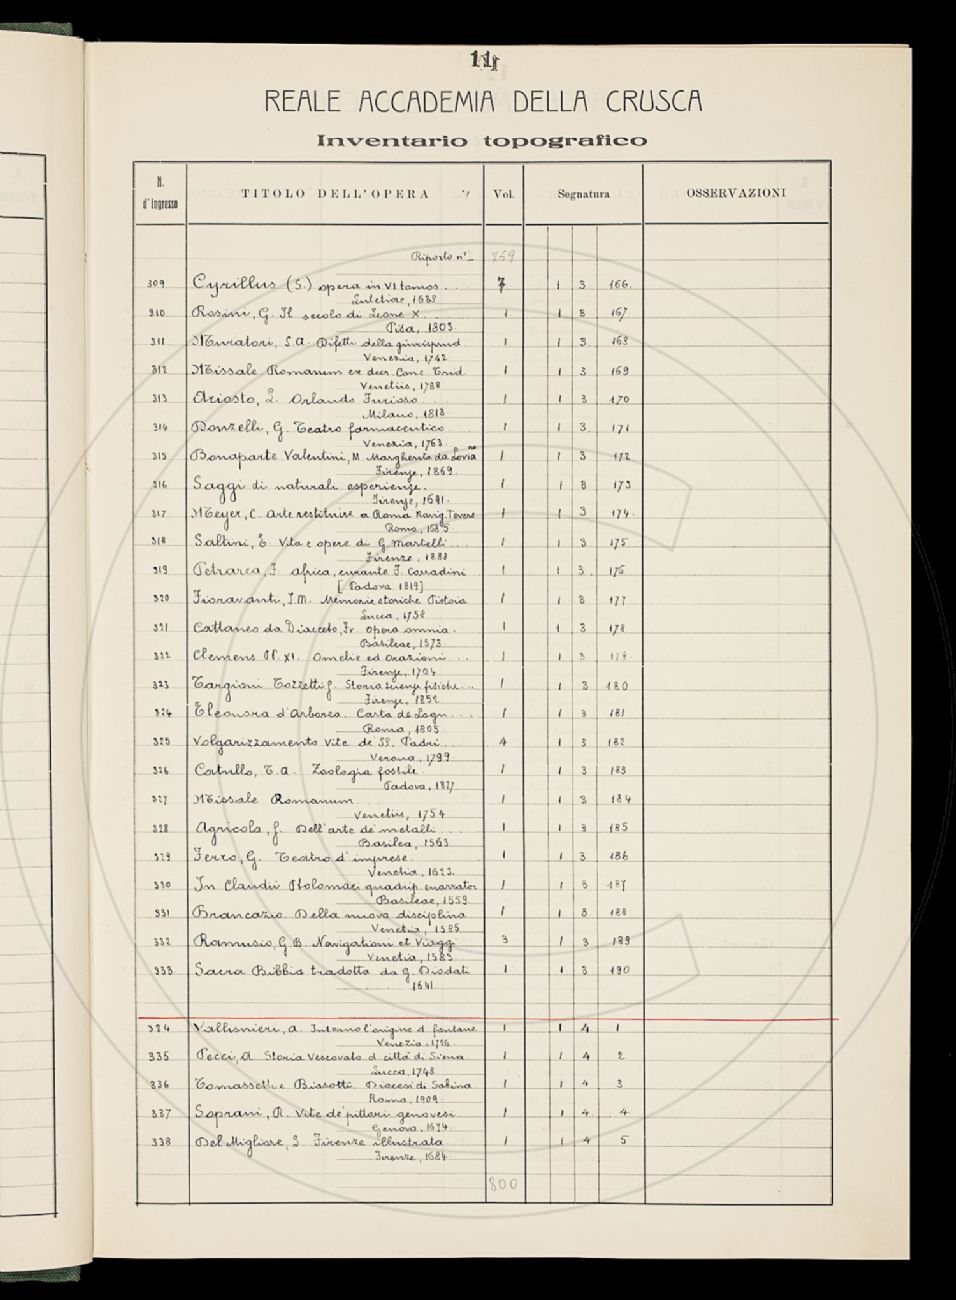 11
REALE ACCADEMIA DELLA CRUSCA
Inventario topografico
N. d'ingresso TITOLO DELL'OPERA Vol. Segnatura OSSERVAZIONI
Riporto n° 759
309 Cyrillus (S.) opera in VI tomos. 7 1 3 166.
Lutetiae, 1638
310 Rosini, G. Il secolo di Leone X. 1 1 3 167
Pisa, 1803
311 Muratori, L.A. Difetti della giurisprud. 1 1 3 168
Venezia, 1742
312 Missale Romanum ex decr. Conc. Trid. 1 1 3 169
Venetiis, 1788
313 Ariosto, L. Orlando Furioso 1 1 3 170
Milano, 1818.
314 Donzelli, G. Teatro farmaceutico. 1 1 3 171
Venezia, 1763.
315 Bonaparte Valentini, M. Margherita da 1 1 3 172
Firenze, 1869.
316 Saggi di naturali esperienze. 1 1 3 173
Firenze, 1691.
317 Meyer, C. Arte restituire a Roma navig. Tevere 1 1 3 174.
Roma, 1685
318 Saltini, E. Vita e opere di G. Martelli 1 1 3 175
Firenze, 1888
319 Petrarca, F. Africa, curante F. Corradini 1 1 3 176
[Padova 1819]
320 Fioravanti, J.M. Memorie storiche Pistoia 1 1 3 177
Lucca, 1758
321 Cattaneo da Diacceto, Fr. Opera omnia. 1 1 3 178
Basileae, 1573
322 Clemens PP. XI. Omelie ed orazioni... 1 1 3 179
Firenze, 1704
323 Targioni Tozzetti G. Storia scienze fisiche... 1 1 3 180
Firenze, 1852
324 Eleonora d'Arborea. Carta de Logu... 1 1 3 181
Roma, 1805
325 Volgarizzamento Vite de' SS. Padri 4 1 3 182
Verona, 1799
326 Catullo, T.A. Zoologia fossile. 1 1 3 183
Padova, 1827
327 Missale Romanum 1 1 3 184
Venetiis, 1754
328 Agricola, G. Dell'arte de' metalli 1 1 3 185
Basilea, 1563
329 Ferro, G. Teatro d'imprese. 1 1 3 186
Venetia, 1623.
330 In Claudii Ptolomaei quadrip. enarrator 1 1 3 187
Basileae, 1559
331 Brancazio. Della nuova disciplina 1 1 3 188
Venetia, 1585
332 Ramusio, G.B. Navigationi et Viaggi 3 1 3 189
Venetia, 1583
333 Sacra Bibbia tradotta da G. Diodati 1 1 3 190
1641.
334 Vallisnieri, A. Intorno l'origine d. fontane 1 1 4 1
Venezia, 1726
335 Pecci, A. Storia Vescovato d. città di Siena 1 1 4 2
Lucca, 1748
336 Tomassetti e Biasotti. Diocesi di Sabina 1 1 4 3
Roma, 1909.
337 Soprani, R. Vite de' pittori genovesi. 1 1 4 4
Genova, 1674
338 Del Migliore, L. Firenze illustrata 1 1 4 5
Firenze, 1684.
800